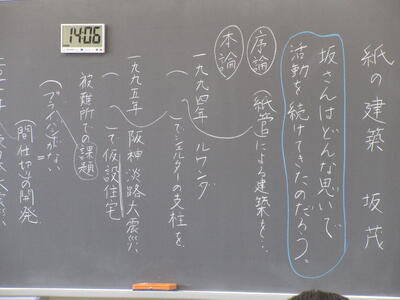 14:06
紙の建築 坂茂
坂さんはどんな思いで
活動を続けてきたのだろう。
序論
(紙管)による建築を…
本論
一九九四年 ルワンダ
( )でシェルターの支柱を
一九九五年 阪神淡路大震災
( )で仮設住宅
避難所での課題
(プライバシーがない
=
(間仕切りの開発